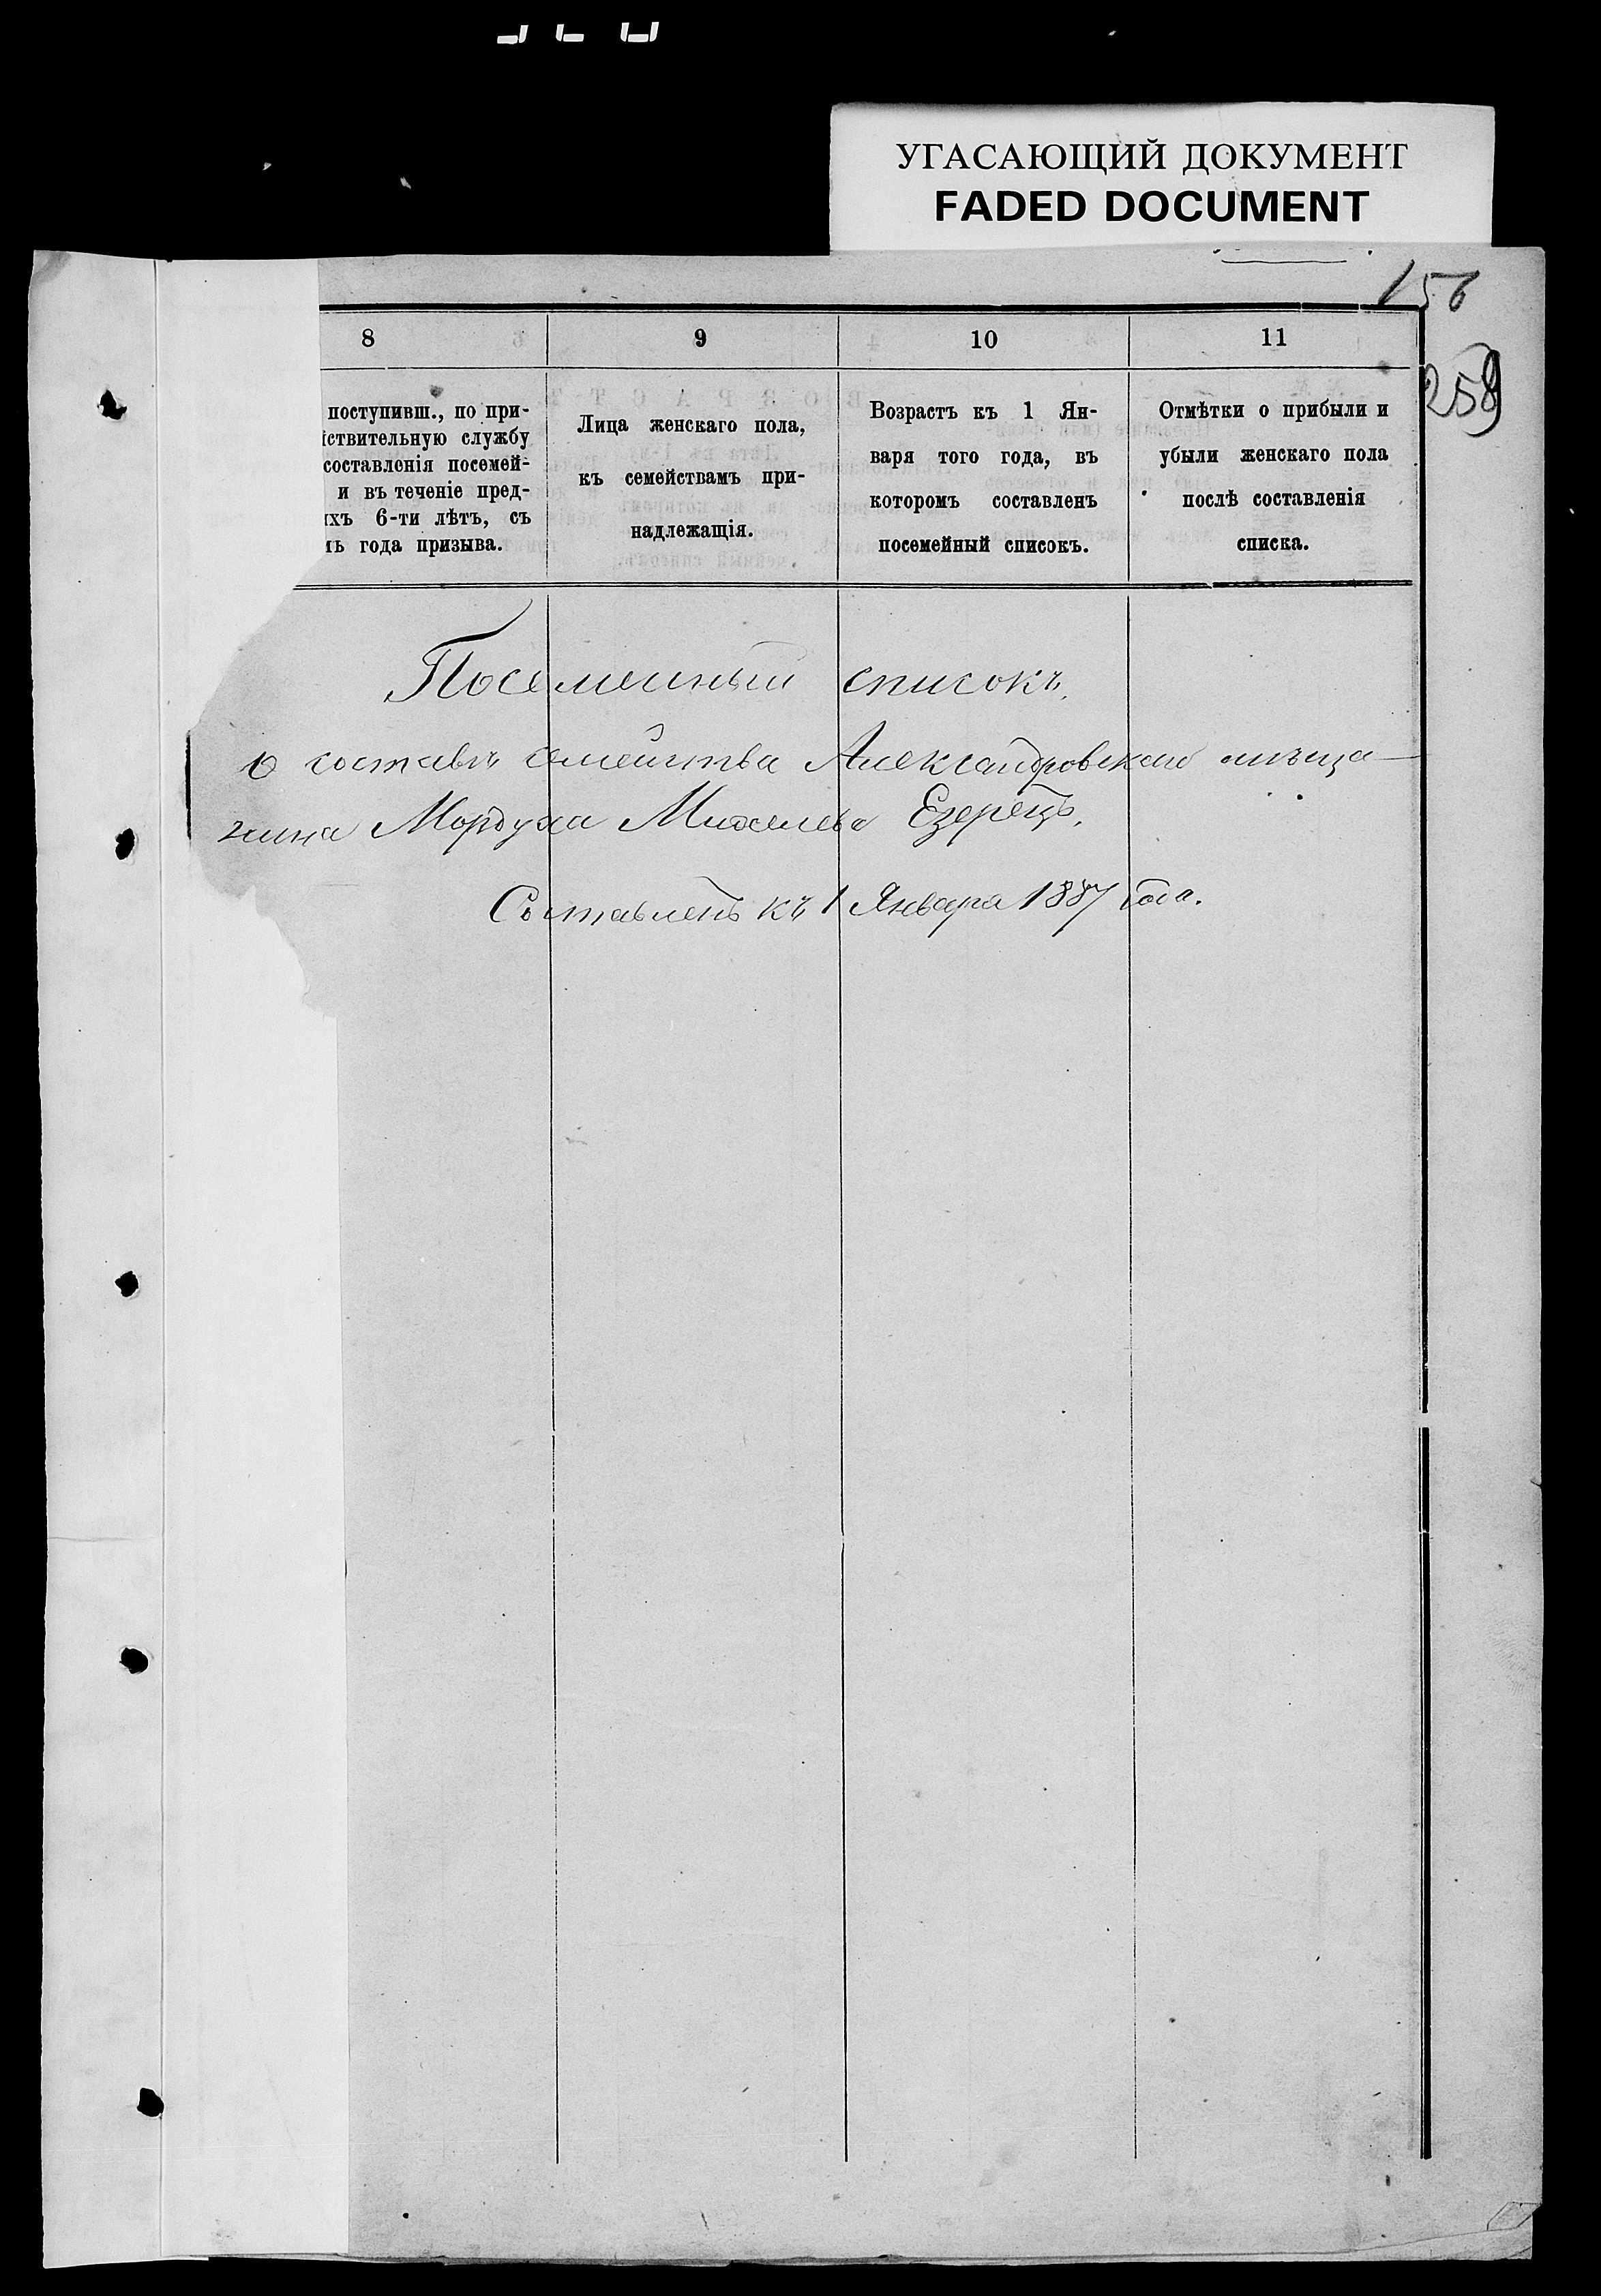 УГАСАЮЩИЙ ДОКУМЕНТ
FADED DOCUMENT
156
258
8
9
10
11
поступивш., по при-
йствительную службу
составленія посемей-
и въ теченіе пред-
ихъ 6-ти лѣтъ, съ
мъ года призыва.
Лица женскаго пола,
къ семействамъ при-
надлежащія.
Возрастъ къ 1 Ян-
варя того года, въ
которомъ составленъ
посемейный списокъ.
Отмѣтки о прибыли и
убыли женскаго пола
послѣ составленія
списка.
Посемейный списокъ,
о составѣ семейства Александровскаго мѣща-
нина Мордуха Михелева Езерецъ,
Составленъ къ 1 Января 1887 года.